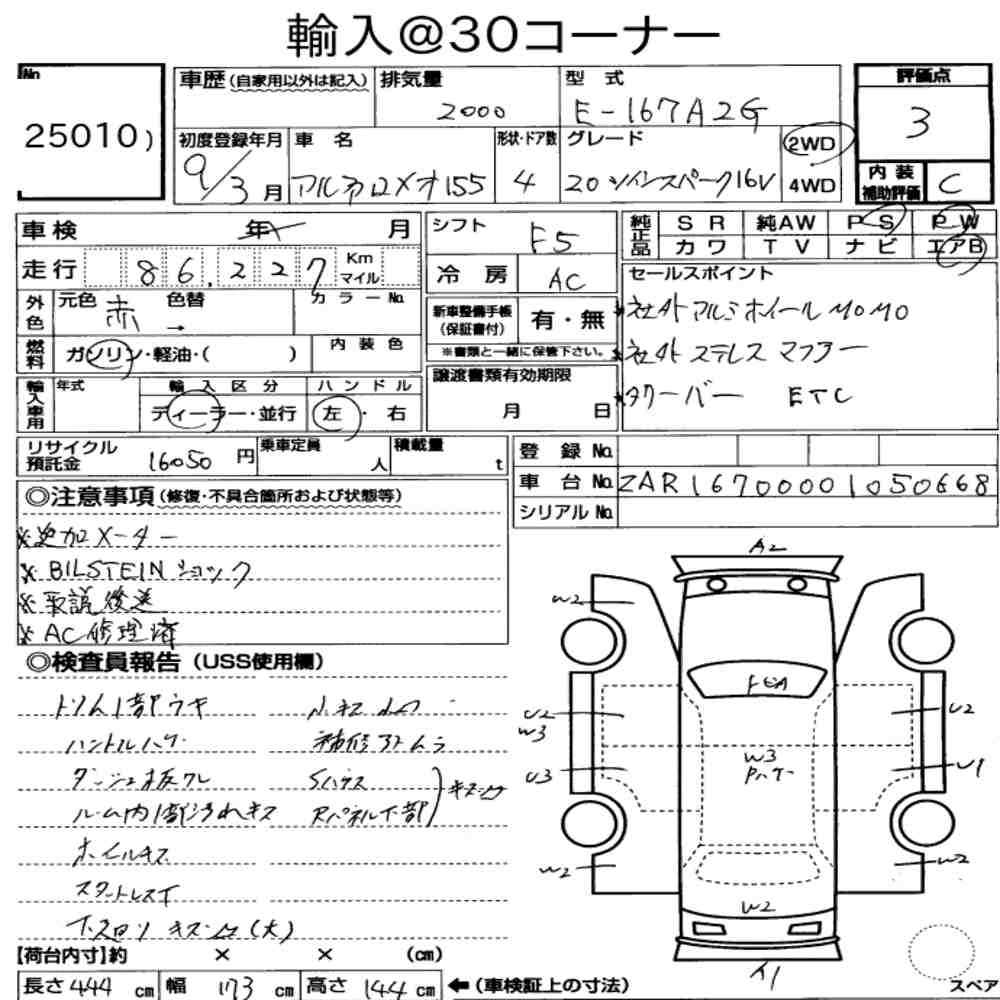 輸入@30コーナー
No
25010)
車歴(自家用以外は記入)
排気量
2000
型 式
E-167A2G
評価点
3
初度登録年月
9/3月
車 名
アルファロメオ155
形状・ドア数
4
グレード
20ツインスパーク16V
2WD
4WD
内装
補助評価
C
車検 年 月
走行 86,227 Km マイル
外色
元色 赤 色替 →
カラーNo.
燃料
ガソリン・軽油・( )
内装色
輸入車用
年式
輸入区分
ディーラー・並行
ハンドル
左・右
シフト
F5
冷房
AC
新車整備手帳
(保証書付)
有・無
※書類と一緒に保管下さい。
譲渡書類有効期限
月 日
純正品
SR 純AW PS PW
カワ TV ナビ エアB
セールスポイント
*社外アルミホイールMOMO
*社外ステレスマフラー
*タワーバー ETC
リサイクル
預託金
16050円
乗車定員
人
積載量
t
登録No.
車台No. ZAR16700001050668
シリアルNo.
◎注意事項(修復・不具合箇所および状態等)
※追加メーター
※BILSTEINショック
※取説後送
※AC修理済
◎検査員報告(USS使用欄)
トリム1部ウキ
ハンドルハゲ
補修アトムラ
ダッシュ板ワレ
ルーム内1部汚れキス
Rパネル下部
ホイルキス
A2
W2
U2
W3
U3
W2
W3
Pハゲ
U2
U1
W2
W2
【荷台内寸】約 × × (cm)
長さ444cm 幅173cm 高さ144cm ←(車検証上の寸法)
スペア